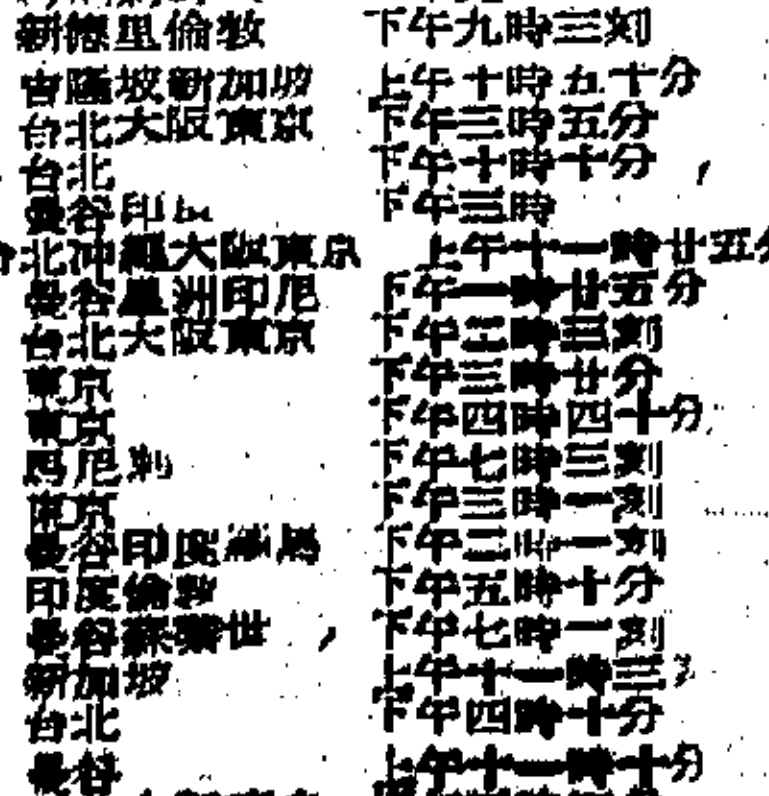 新德里倫敦 下午九時三刻
吉隆坡新加坡 上午十時五十分
台北大阪東京 下午三時五分
台北 下午十時十分
曼谷印 下午三時
台北沖繩大阪東京 上午十一時廿五分
曼谷星洲印尼 下午一時廿五分
台北大阪東京 下午二時三刻
東京 下午三時廿分
東京 下午四時四十分
馬尼剌 下午七時三刻
東京 下午三時一刻
曼谷印度羅馬 下午二時一刻
印度倫敦 下午五時十分
曼谷蘇黎世 下午七時一刻
新加坡 上午十一時三
台北 下午四時十分
曼谷 上午十一時十分